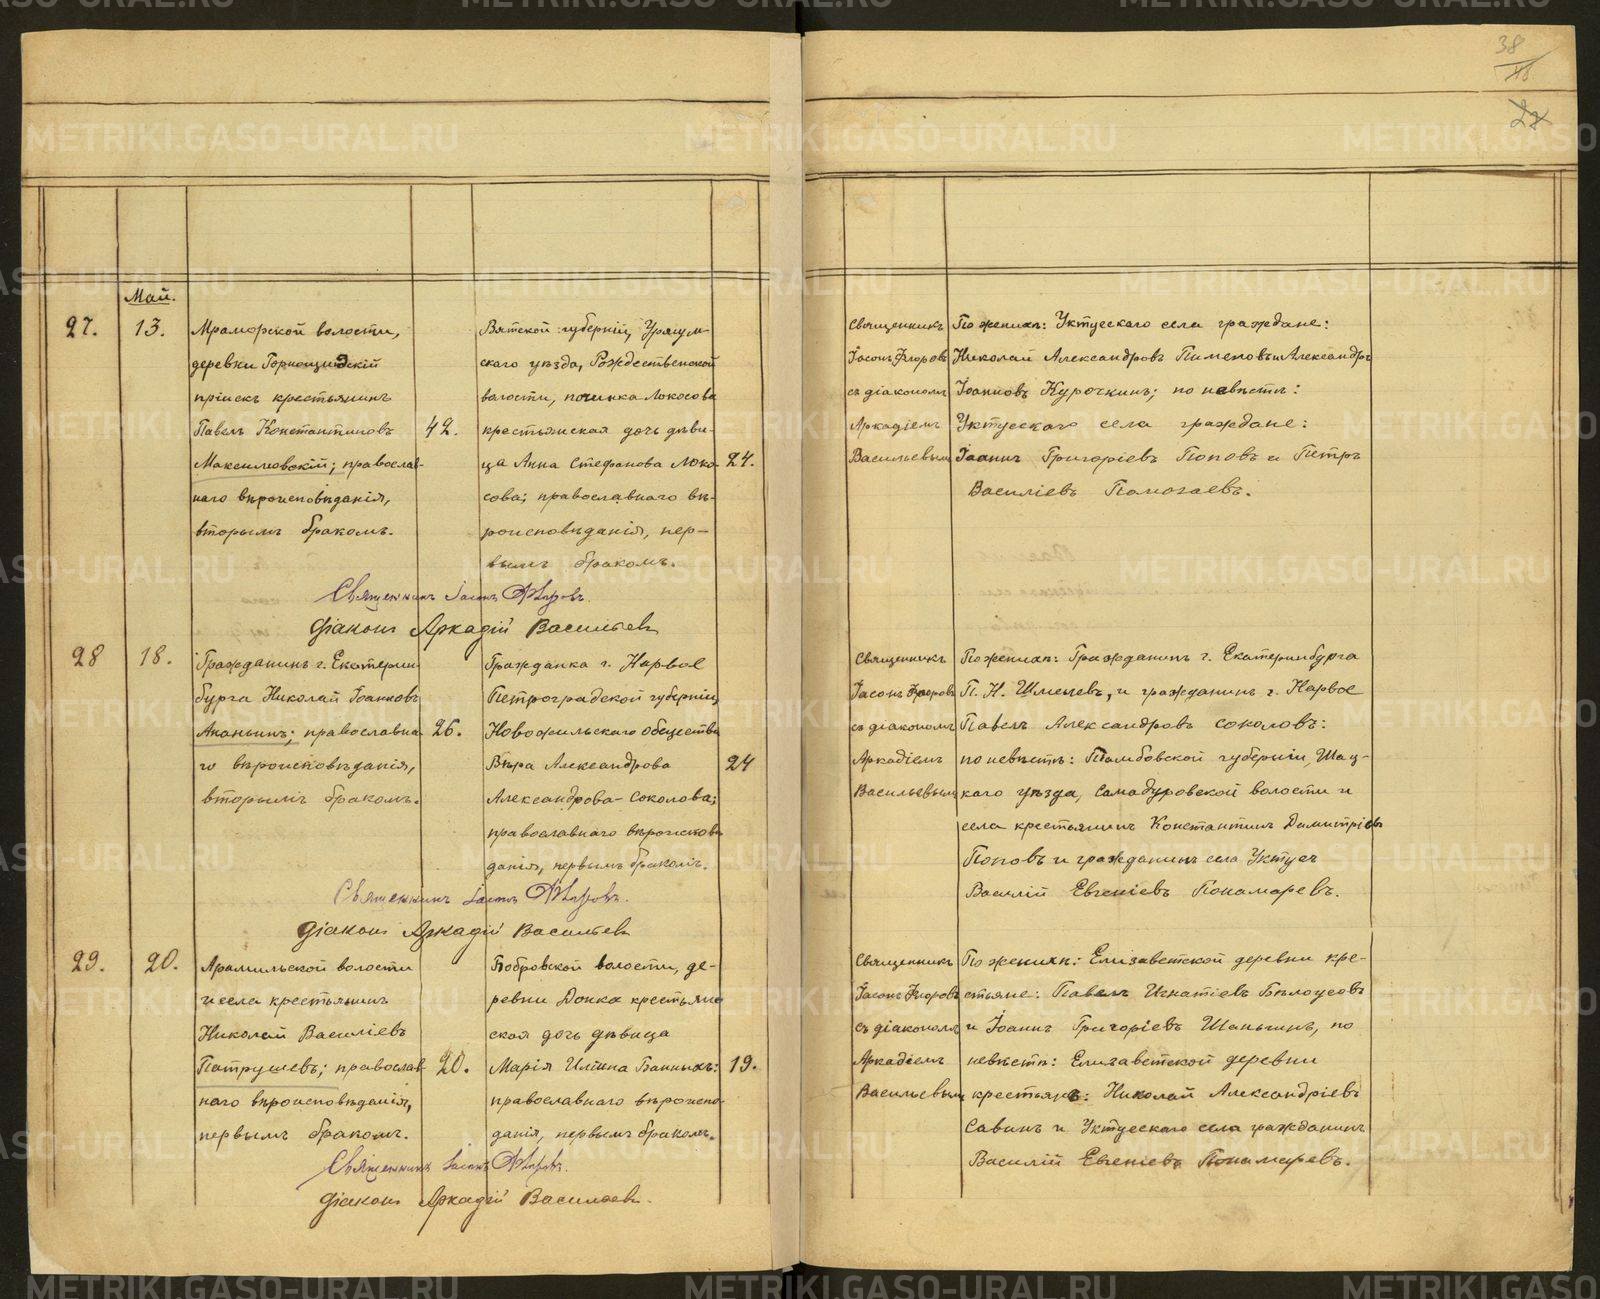 38
27
Май.
27.
13.
Мраморской волости,
деревки Горнощидскій
пріискъ крестьянинъ
Павелъ Константиновъ
Максимовскій; православ-
наго вѣроисповѣданія,
вторымъ бракомъ.
42.
Вятской губерніи, Уржум-
скаго уѣзда, Рождественской
волости, починка Локосова
крестьянская дочь дѣви-
ца Анна Стефанова Локо-
сова; православнаго вѣ-
роисповѣданія, пер-
вымъ бракомъ.
24.
Священникъ Іасонъ Флоровъ.
Діаконъ Аркадій Васильевъ
Священникъ
Іасонъ Флоровъ
съ діакономъ
Аркадіемъ
Васильевымъ
По женихѣ: Уктусскаго села граждане:
Николай Александровъ Пименовъ и Александръ
Іоанновъ Курочкинъ; по невѣстѣ:
Уктусскаго села граждане:
Іоаннъ Григоріевъ Поповъ и Петръ
Василіевъ
28
18.
Гражданинъ г. Екатерин
бурга Николай Іоанновъ
Ананьинъ; православна
го вѣроисповѣданія,
вторымъ бракомъ.
26.
Гражданка г. Нарвое
Петроградской губерніи,
Новожильскаго общества
Вѣра Александрова
Александрова-Соколова;
православнаго вѣроисповѣ
данія, первымъ бракомъ.
24
Священникъ Іасонъ Флоровъ.
Діаконъ Аркадій Васильевъ
Священникъ
Іасонъ Флоровъ
съ діакономъ
Аркадіемъ
Васильевымъ
По женихѣ: Гражданинъ г. Екатеринбурга
П. Н. Шмелевъ, и гражданинъ г. Нарвое
Павелъ Александровъ Соколовъ:
по невѣстѣ: Тамбовской губерніи, Шац-
каго уѣзда, Самадуровской волости и
села крестьянинъ Константинъ Димитріевъ
Поповъ и гражданинъ села Уктусъ
Василій Евгеніевъ Пономаревъ.
29.
20.
Арамильской волости
и села крестьянинъ
Николай Василіевъ
Патрушевъ; православ-
наго вѣроисповѣданія,
первымъ бракомъ.
20.
Бобровской волости, де-
ревни Донка крестьянс
ская дочь дѣвица
Марія Иліина Банныхъ:
православнаго вѣроиспо
данія, первымъ бракомъ.
19.
Священникъ Іасонъ Флоровъ.
Діаконъ Аркадій Васильевъ.
Священникъ
Іасонъ Флоровъ
съ діакономъ
Аркадіемъ
Васильевымъ
По женихѣ: Елизаветской деревни кре-
стьяне: Павелъ Игнатіевъ Бѣлоусовъ
и Іоаннъ Григоріевъ Шаньгинъ, по
невѣстѣ: Елизаветской деревни
крестьянъ: Николай Александріевъ
Савинъ и Уктусскаго села гражданинъ
Василій Евгеніевъ Пономаревъ.
METRIKI.GASO-URAL.RU